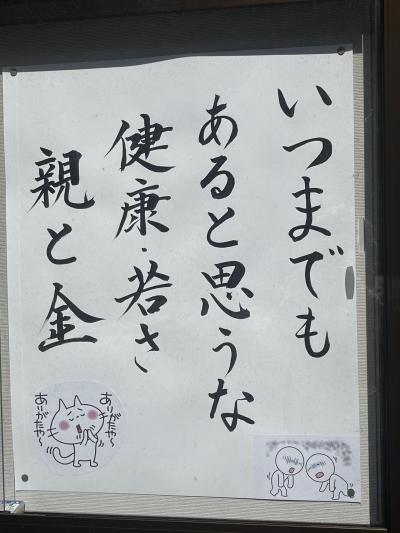 いつまでも
あると思うな
健康・若さ
親と金
ありがたや〜
ありがたや〜